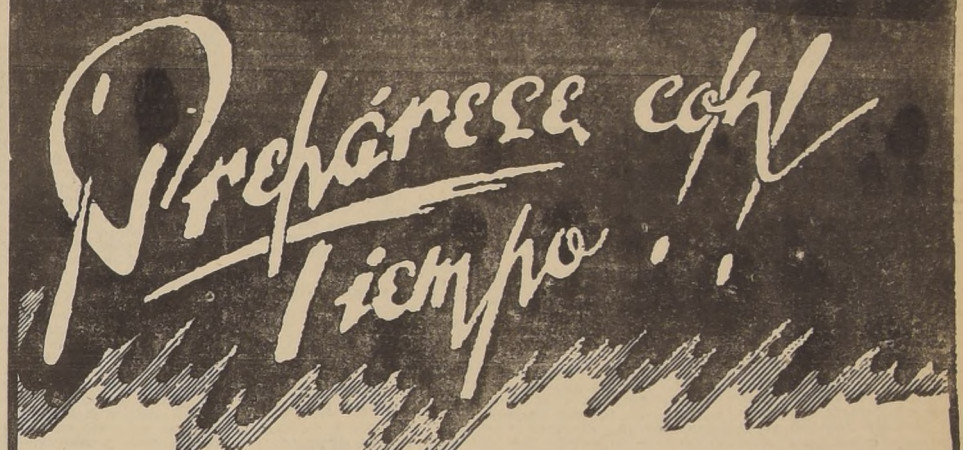 Prepárese con
Tiempo!!